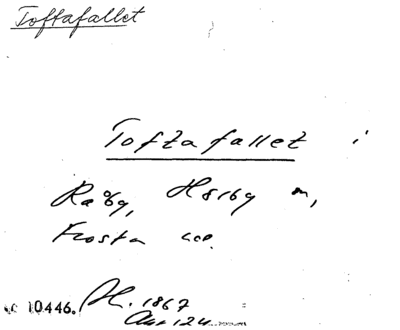 Toftafallet
Toftafallet i
Råby, Hörby m,
Frosta
10446. H. 1867
Akt 124